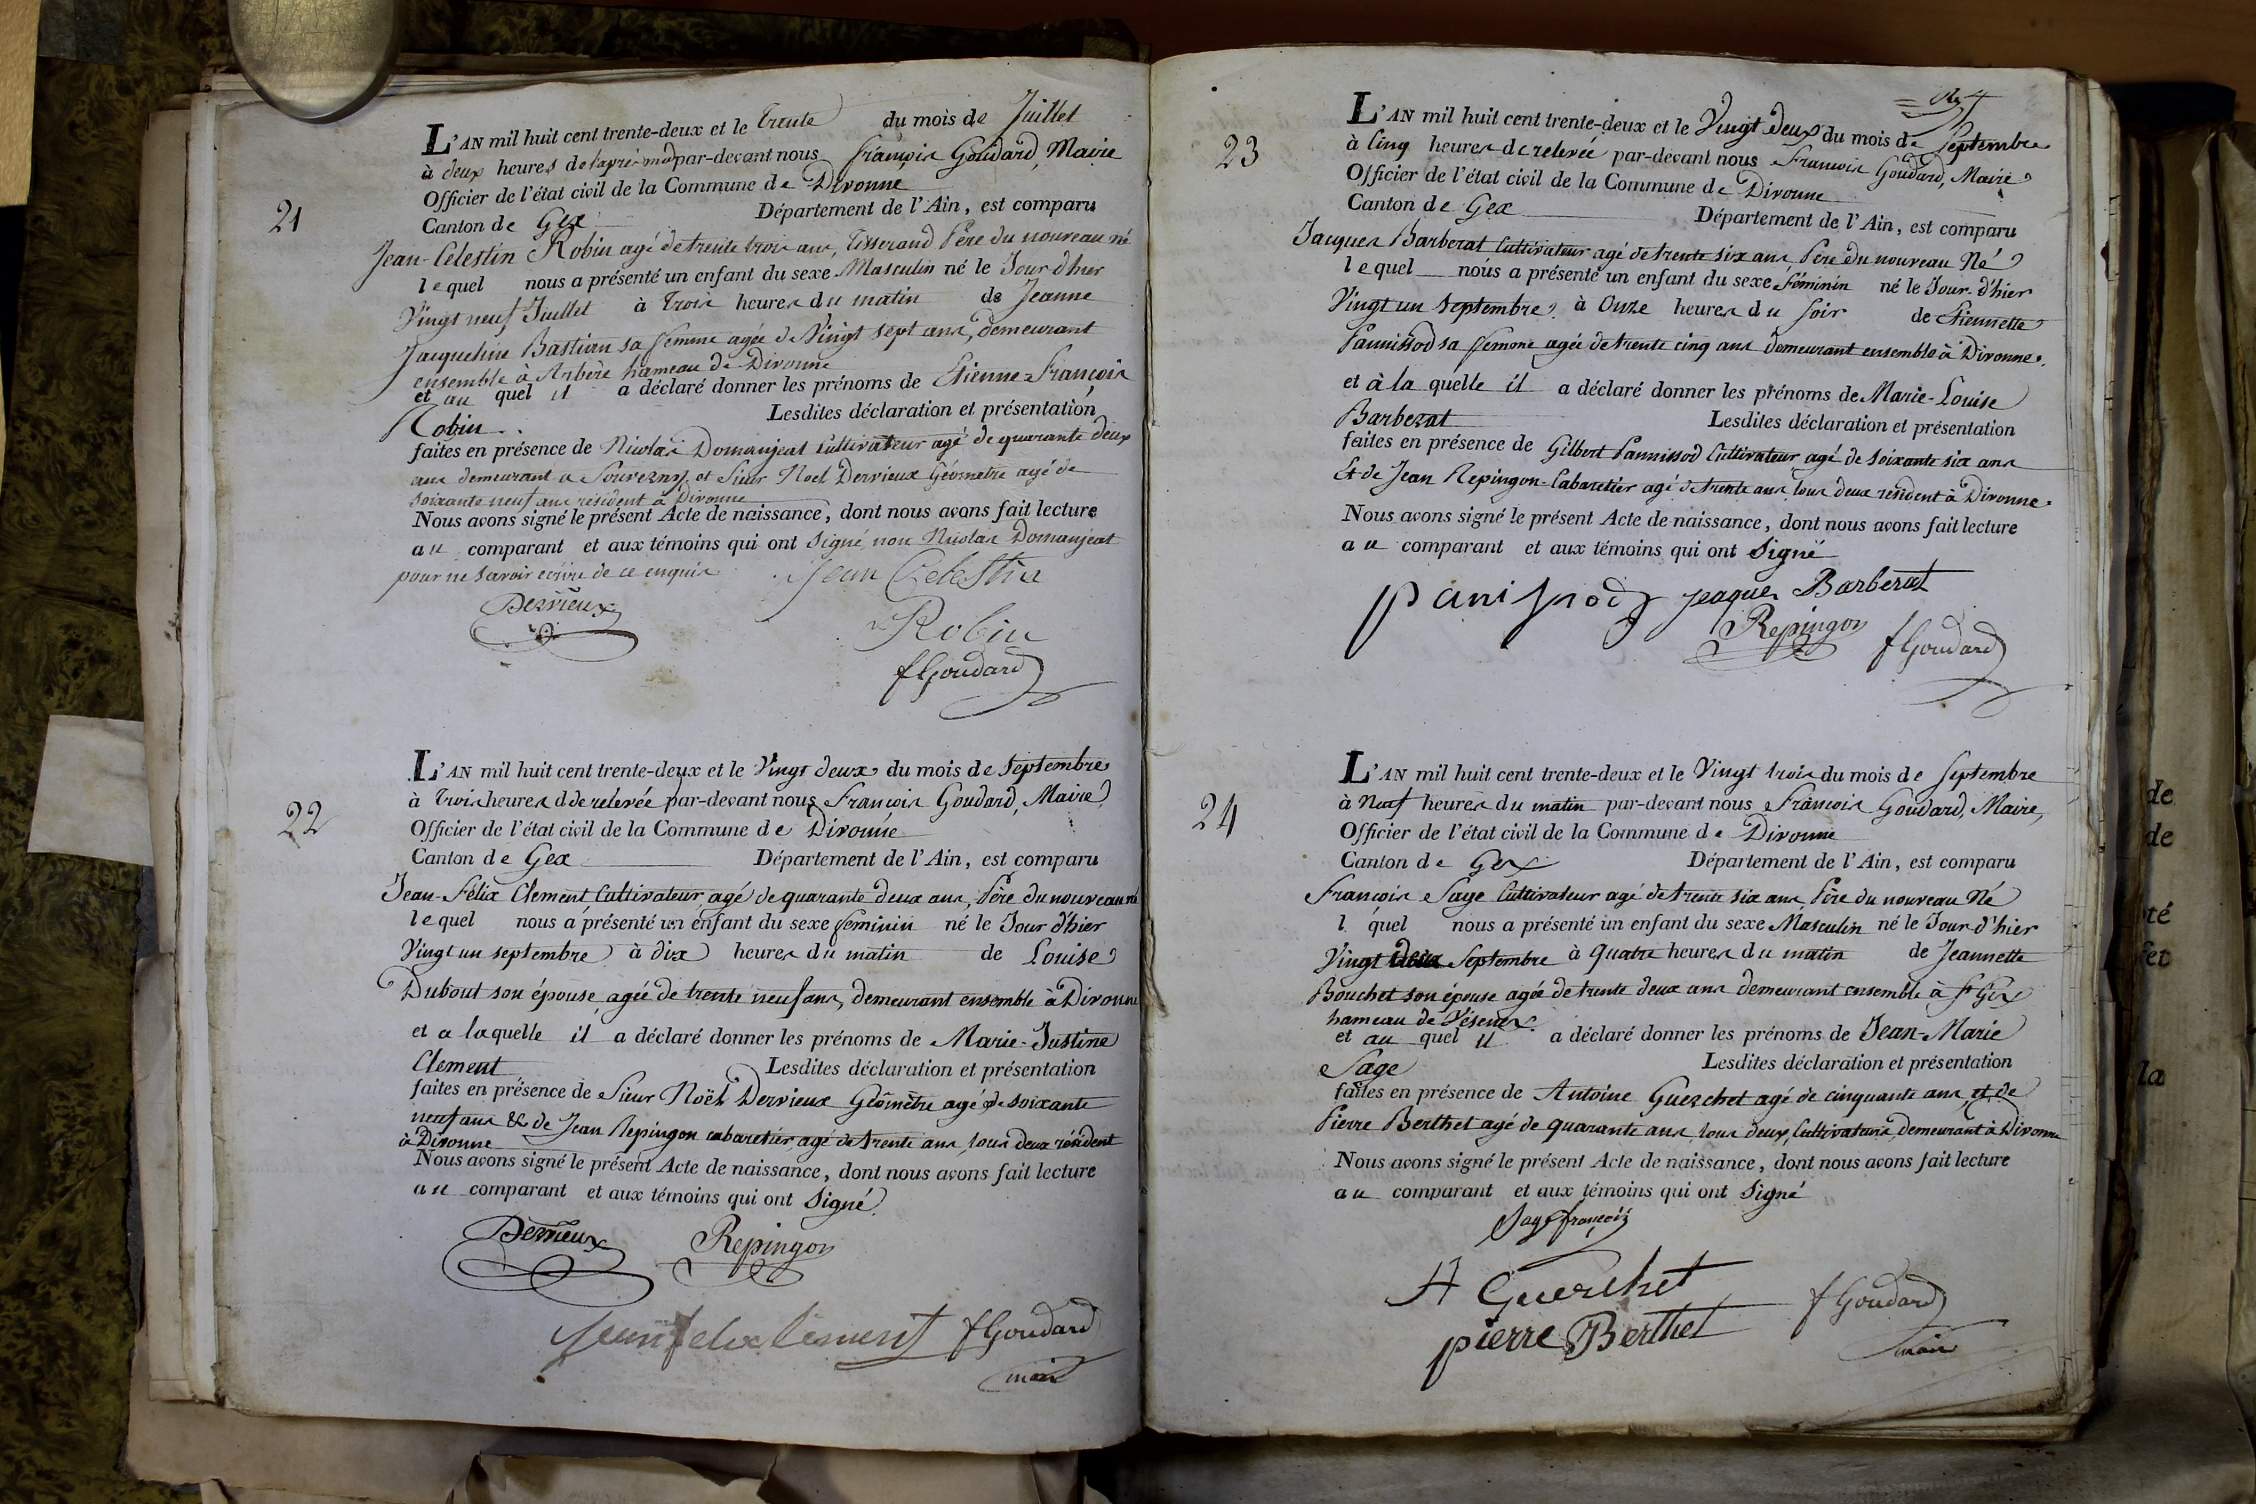 21
L'AN mil huit cent trente-deux et le Trente du mois de Juillet
à deux heures de l'apré-midi par-devant nous françois Goudard, Maire
Officier de l'état civil de la Commune de Divonne
Canton de Gex Département de l'Ain, est comparu
Jean-Celestin Robin agé de trente trois ans, Tisserand Père du nouveau né
lequel nous a présenté un enfant du sexe Masculin né le Jour d'hier
Vingt neuf Juillet à trois heures du matin de Jeanne
Jacqueline Bastian sa femme agée de Vingt sept ans, demeurant
ensemble à Arbère hameau de Divonne
et au quel il a déclaré donner les prénoms de Etienne-François
Robin. Lesdites déclaration et présentation
faites en présence de Nicolas Domanjeat Cultivateur agé de quarante deux
ans demeurant a Souverny, et Sieur Noel Dervieux Géometre agé de
soixante neuf ans résident à Divonne
Nous avons signé le présent Acte de naissance, dont nous avons fait lecture
au comparant et aux témoins qui ont signé, non Nicolas Domanjeat
pour ne savoir ecrire de ce enquis
Jean Celestin
Dervieux
Robin
f Goudard
22
L'AN mil huit cent trente-deux et le Vingt deux du mois de Septembre
à Trois heures d de relevée par-devant nous François Goudard, Maire,
Officier de l'état civil de la Commune de Divonne
Canton de Gex Département de l'Ain, est comparu
Jean-Félix Clement Cultivateur agé de quarante deux ans, Père du nouveau né
lequel nous a présenté un enfant du sexe feminin né le Jour d'hier
Vingt un septembre à dix heures du matin de Louise
Dubout son épouse, agée de trente neuf ans, demeurant ensemble à Divonne
et a laquelle il a déclaré donner les prénoms de Marie-Justine
Clement Lesdites déclaration et présentation
faites en présence de Sieur Noël Dervieux Géomètre agé de soixante
neuf ans & de Jean Repingon cabaretier, agé de trente ans, tous deux résident
à Divonne
Nous avons signé le présent Acte de naissance, dont nous avons fait lecture
au comparant et aux témoins qui ont Signé.
Dervieux Repingon
Jean felix clement f Goudard
maire
23
L'AN mil huit cent trente-deux et le Vingt deux du mois de Septembre
à Cinq heures de relevée par-devant nous François Goudard, Maire
Officier de l'état civil de la Commune de Divonne
Canton de Gex Département de l'Ain, est comparu
Jacques Barberat Cultivateur agé de trente six ans Père du nouveau Né
lequel nous a présenté un enfant du sexe féminin né le Jour d'hier
Vingt un Septembre, à Onze heures du soir de Etiennette
Pannissod sa femme agée de trente cinq ans demeurant ensemble à Divonne.
et à la quelle il a déclaré donner les prénoms de Marie-Louise
Barberat Lesdites déclaration et présentation
faites en présence de Gilbert Pannissod Cultivateur agé de soixante six ans
Et de Jean Repingon-Cabaretier agé de trente ans, tous deux résident à Divonne.
Nous avons signé le présent Acte de naissance, dont nous avons fait lecture
au comparant et aux témoins qui ont Signé
panissod jeaques Barberat
Repingon f Goudard
24
L'AN mil huit cent trente-deux et le Vingt trois du mois de Septembre
à Neuf heures du matin par-devant nous François Goudard, Maire,
Officier de l'état civil de la Commune de Divonne
Canton de Gex Département de l'Ain, est comparu
François Sage Cultivateur agé de trente six ans Père du nouveau Né
l quel nous a présenté un enfant du sexe Masculin né le Jour d'hier
Vingt deux Septembre à Quatre heures du matin de Jeannette
Bouchet son épouse agée de trente deux ans demeurant ensemble à St Gix
hameau de Vésenex.
et au quel il a déclaré donner les prénoms de Jean-Marie
Sage Lesdites déclaration et présentation
faites en présence de Antoine Guerchet agé de cinquante ans, et de
Pierre Berthet agé de quarante ans, tous deux Cultivateurs, demeurant à Divonne
Nous avons signé le présent Acte de naissance, dont nous avons fait lecture
au comparant et aux témoins qui ont Signé
Sage françois
A Guerchet f Goudard
pierre Berthet maire
de
de
té
et
la